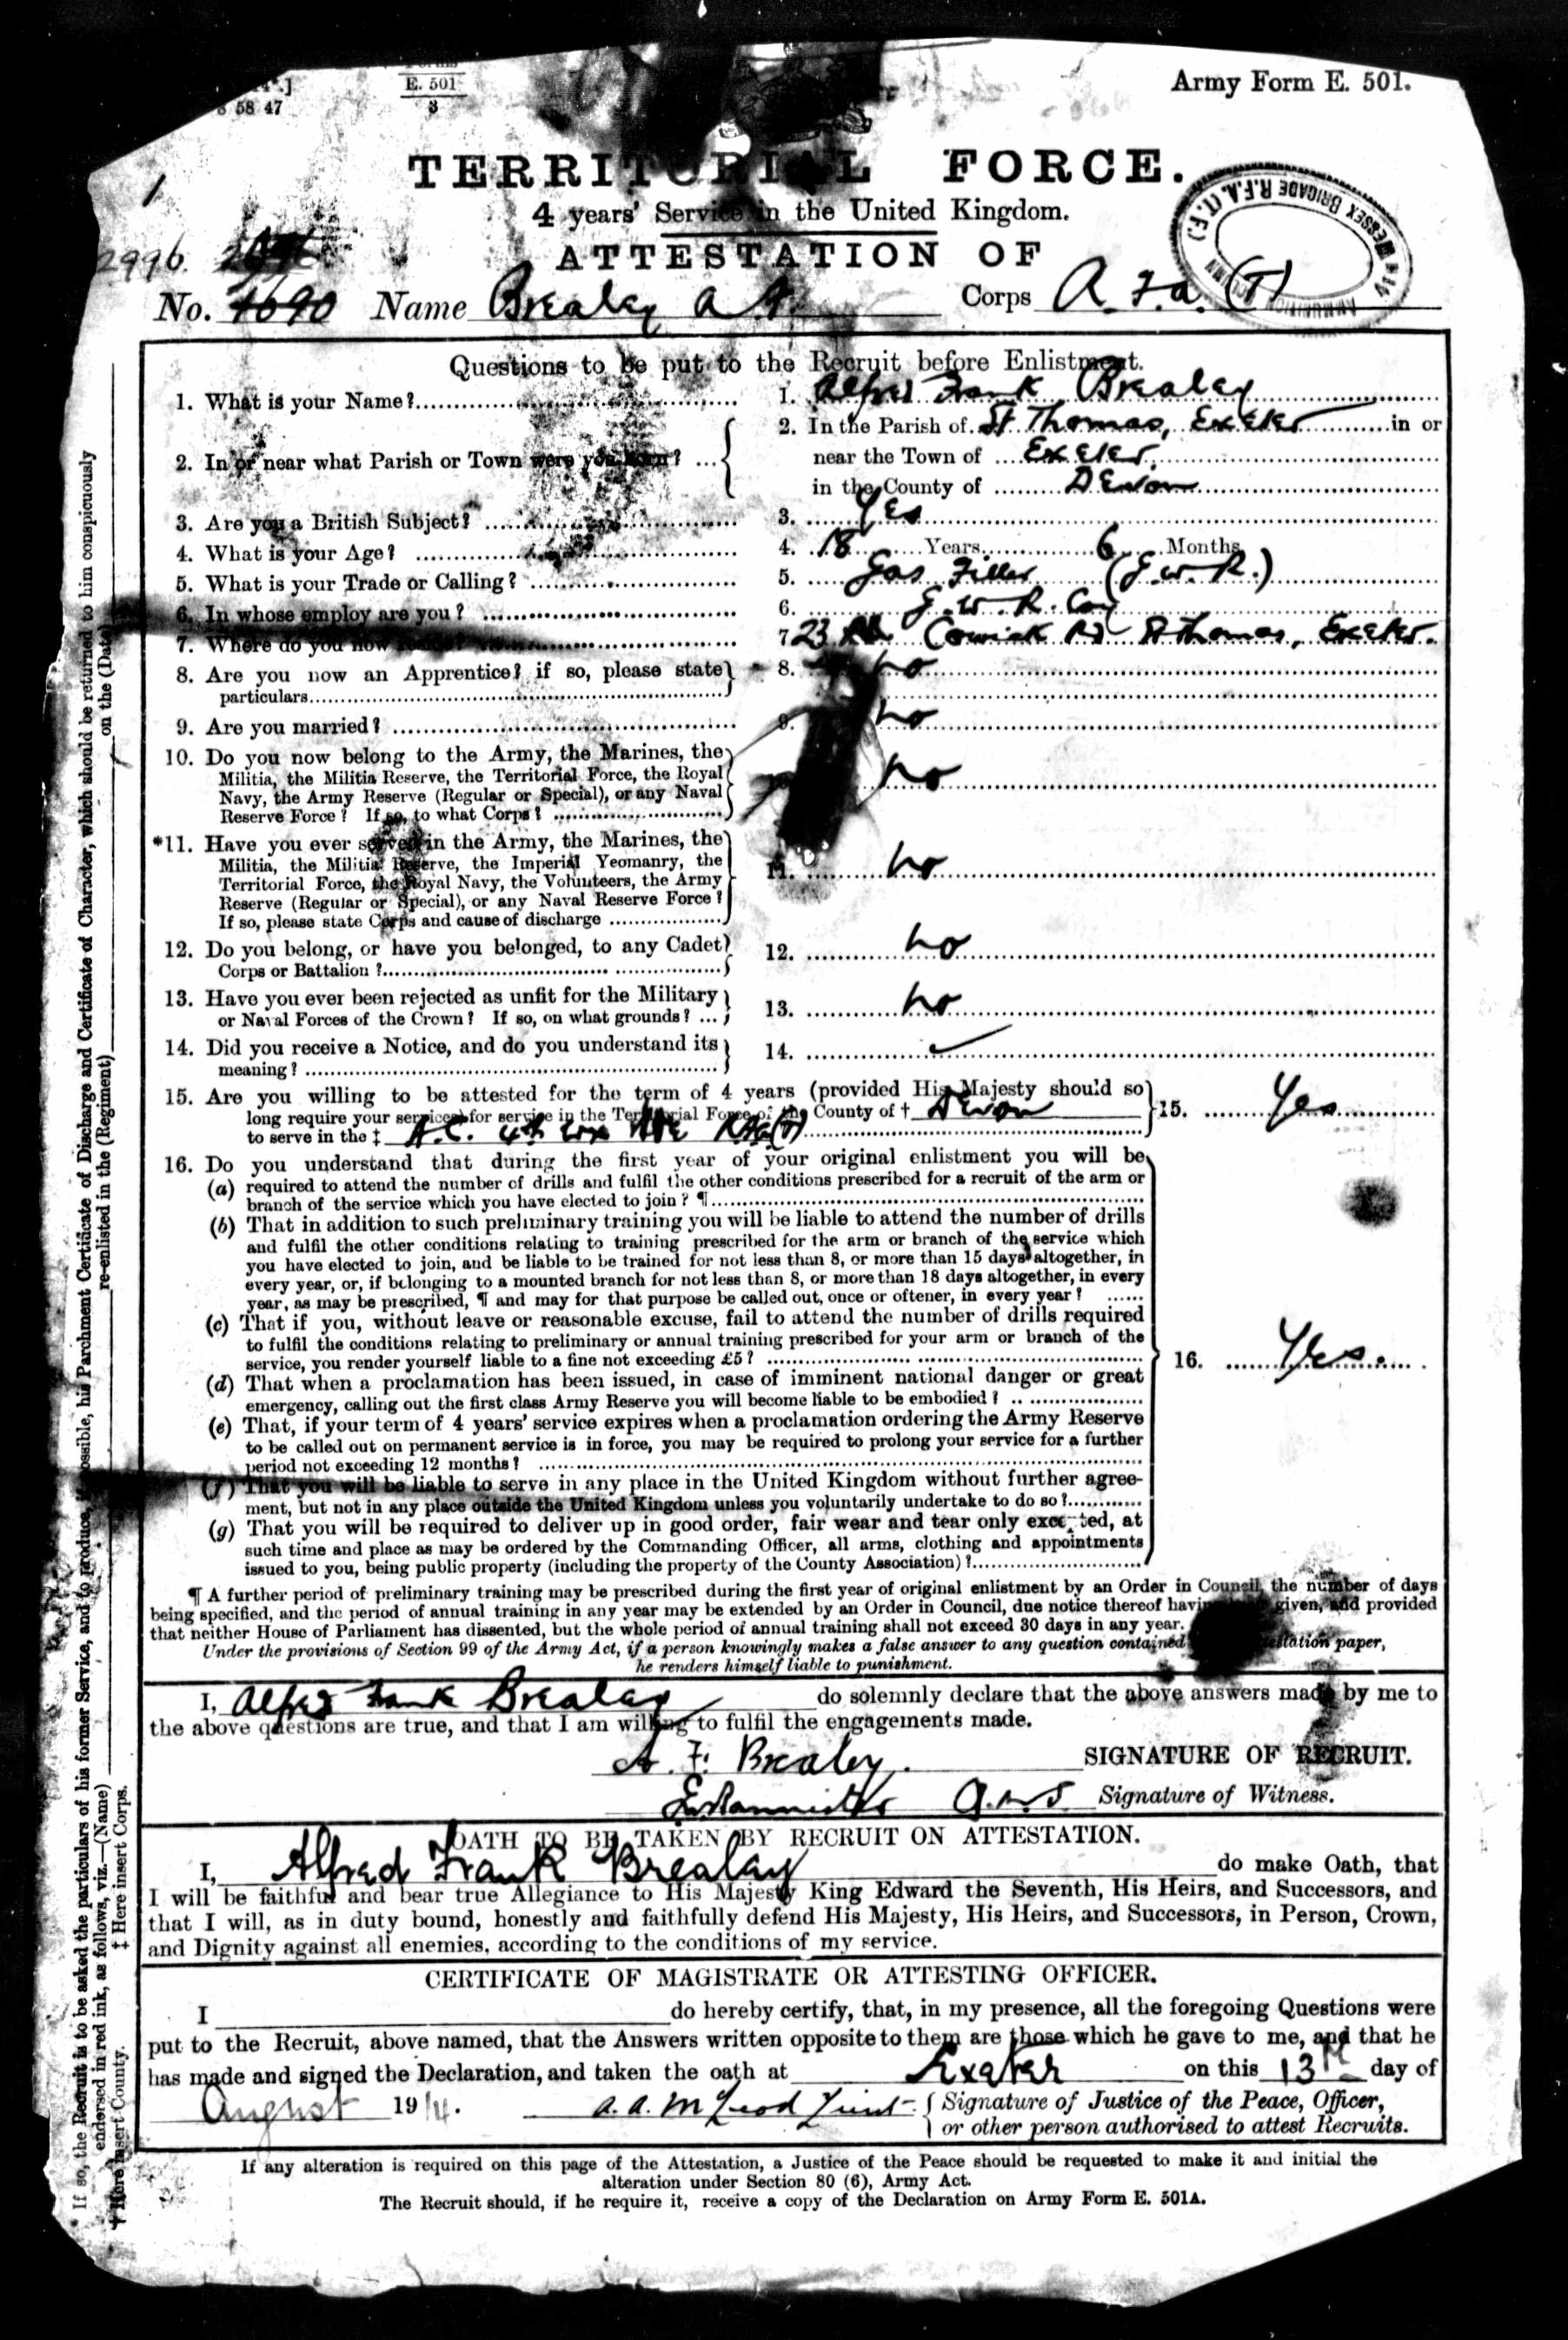 E. 501
3
58 47
Army Form E. 501.
TERRITORIAL FORCE.
4 years' Service in the United Kingdom.
ATTESTATION OF
1
2996.
No. 4690 Name Brealey A F. Corps R.F.A. (T)
WESSEX BRIGADE R.F.A. (T.F.)
Questions to be put to the Recruit before Enlistment.
1. What is your Name? 1. Alfred Frank Brealey
2. In or near what Parish or Town were you born? 2. In the Parish of St Thomas, Exeter in or
near the Town of Exeter.
in the County of Devon
3. Are you a British Subject? 3. Yes
4. What is your Age? 4. 18 Years 6 Months
5. What is your Trade or Calling? 5. Gas Fitter (G.W.R.)
6. In whose employ are you? 6. G.W.R. Coy
7. Where do you now reside? 7 23 Cowick Rd St Thomas, Exeter.
8. Are you now an Apprentice? if so, please state 8. No
particulars
9. Are you married? 9. No
10. Do you now belong to the Army, the Marines, the No
Militia, the Militia Reserve, the Territorial Force, the Royal
Navy, the Army Reserve (Regular or Special), or any Naval
Reserve Force? If so, to what Corps?
*11. Have you ever served in the Army, the Marines, the 11. No
Militia, the Militia Reserve, the Imperial Yeomanry, the
Territorial Force, the Royal Navy, the Volunteers, the Army
Reserve (Regular or Special), or any Naval Reserve Force?
If so, please state Corps and cause of discharge
12. Do you belong, or have you belonged, to any Cadet 12. No
Corps or Battalion?
13. Have you ever been rejected as unfit for the Military 13. No
or Naval Forces of the Crown? If so, on what grounds? ...
14. Did you receive a Notice, and do you understand its 14. ✓
meaning?
15. Are you willing to be attested for the term of 4 years (provided His Majesty should so
long require your services) for service in the Territorial Force of the County of † Devon 15. Yes
to serve in the ‡ A.C. 4th Wx Bde RFA(T)
16. Do you understand that during the first year of your original enlistment you will be
(a) required to attend the number of drills and fulfil the other conditions prescribed for a recruit of the arm or
branch of the service which you have elected to join? ¶
(b) That in addition to such preliminary training you will be liable to attend the number of drills
and fulfil the other conditions relating to training prescribed for the arm or branch of the service which
you have elected to join, and be liable to be trained for not less than 8, or more than 15 days altogether, in
every year, or, if belonging to a mounted branch for not less than 8, or more than 18 days altogether, in every
year, as may be prescribed, ¶ and may for that purpose be called out, once or oftener, in every year?
(c) That if you, without leave or reasonable excuse, fail to attend the number of drills required
to fulfil the conditions relating to preliminary or annual training prescribed for your arm or branch of the
service, you render yourself liable to a fine not exceeding £5? 16. Yes.
(d) That when a proclamation has been issued, in case of imminent national danger or great
emergency, calling out the first class Army Reserve you will become liable to be embodied?
(e) That, if your term of 4 years' service expires when a proclamation ordering the Army Reserve
to be called out on permanent service is in force, you may be required to prolong your service for a further
period not exceeding 12 months?
(f) That you will be liable to serve in any place in the United Kingdom without further agree-
ment, but not in any place outside the United Kingdom unless you voluntarily undertake to do so?
(g) That you will be required to deliver up in good order, fair wear and tear only excepted, at
such time and place as may be ordered by the Commanding Officer, all arms, clothing and appointments
issued to you, being public property (including the property of the County Association)?
¶ A further period of preliminary training may be prescribed during the first year of original enlistment by an Order in Council, the number of days
being specified, and the period of annual training in any year may be extended by an Order in Council, due notice thereof having been given, and provided
that neither House of Parliament has dissented, but the whole period of annual training shall not exceed 30 days in any year.
Under the provisions of Section 99 of the Army Act, if a person knowingly makes a false answer to any question contained attestation paper,
he renders himself liable to punishment.
I, Alfred Frank Brealey do solemnly declare that the above answers made by me to
the above questions are true, and that I am willing to fulfil the engagements made.
A. F. Brealey. SIGNATURE OF RECRUIT.
Signature of Witness.
OATH TO BE TAKEN BY RECRUIT ON ATTESTATION.
I, Alfred Frank Brealey do make Oath, that
I will be faithful and bear true Allegiance to His Majesty King Edward the Seventh, His Heirs, and Successors, and
that I will, as in duty bound, honestly and faithfully defend His Majesty, His Heirs, and Successors, in Person, Crown,
and Dignity against all enemies, according to the conditions of my service.
CERTIFICATE OF MAGISTRATE OR ATTESTING OFFICER.
I do hereby certify, that, in my presence, all the foregoing Questions were
put to the Recruit, above named, that the Answers written opposite to them are those which he gave to me, and that he
has made and signed the Declaration, and taken the oath at Exeter on this 13th day of
August 1914. A. A. McLeod Lieut. Signature of Justice of the Peace, Officer,
or other person authorised to attest Recruits.
If any alteration is required on this page of the Attestation, a Justice of the Peace should be requested to make it and initial the
alteration under Section 80 (6), Army Act.
The Recruit should, if he require it, receive a copy of the Declaration on Army Form E. 501A.
If so, the Recruit is to be asked the particulars of his former Service, and to produce, if possible, his Parchment Certificate of Discharge and Certificate of Character, which should be returned to him conspicuously
endorsed in red ink, as follows, viz.—(Name) re-enlisted in the (Regiment) on the (Date)
† Here insert County. ‡ Here insert Corps.